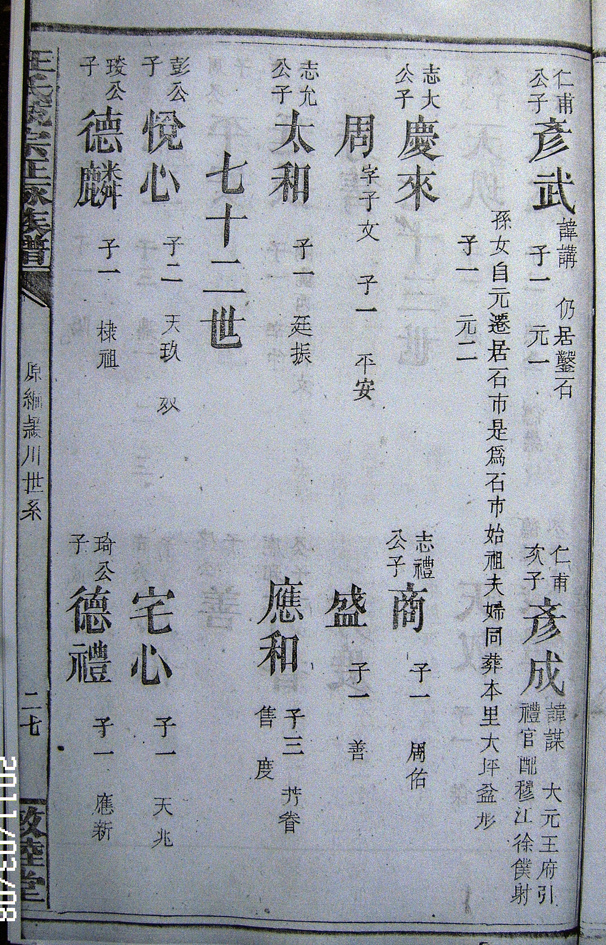 仁甫公子 彥武 諱講 仍居鑿石 子二 元一
仁甫次子 彥成 諱謀 大元王府引禮官配穆江徐僕射
孫女自元遷居石市是爲石市始祖夫婦同葬本里大坪盆形
子一 元二
志大公子 慶來
志禮公子 商 子一 周佑
周 字子文 子一 平安
盛 子一 善
志允公子 太和 子一 廷振
應和 子三 芳 眷 售 度
七十二世
彭公子 悅心 子二 天玖 㚘
宅心 子一 天兆
琦公子 德禮 子一 應新
德麟 子一 棣祖
氏 宗 族譜
原編 川世系
二七
敦睦堂
2011/03/08